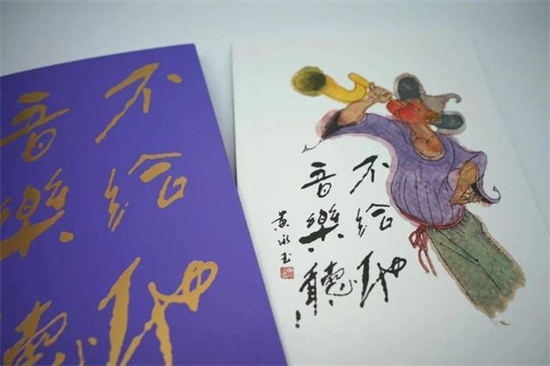 不给他
音樂聽
不给他
音樂聽!
黄永玉